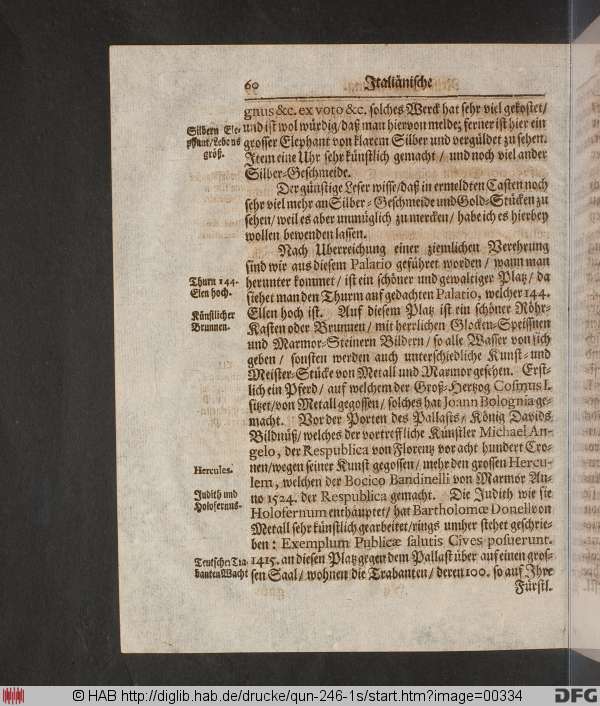 60 Italiänische
gnus &c. ex voto &c. solches Werck hat sehr viel gekostet/
Silbern Ele-
phant/Lebens
größ.
und ist wol würdig/ daß man hiervon melde; ferner ist hier ein
grosser Elephant von klarem Silber und vergüldet zu sehen.
Item eine Uhr sehr künstlich gemacht/ und noch viel ander
Silber-Geschmeide.
Der günstige Leser wisse/ daß in ermeldten Casten noch
sehr viel mehr an Silber-Geschmeide und Gold-Stücken zu
sehen/ weil es aber unmüglich zu mercken/ habe ich es hierbey
wollen bewenden lassen.
Nach Uberreichung einer ziemlichen Verehrung
sind wir aus diesem Palatio geführet worden/ wann man
Thurn 144.
Elen hoch.
herunter kommet/ ist ein schöner und gewaltiger Platz/ da
siehet man den Thurm auf gedachten Palatio, welcher 144.
Künstlicher
Brunnen.
Ellen hoch ist. Auf diesem Platz ist ein schöner Röhr-
Kasten oder Brunnen/ mit herrlichen Glocken-Speissnen
und Marmor-Steinern Bildern/ so alle Wasser von sich
geben/ sonsten werden auch unterschiedliche Kunst- und
Meister-Stücke von Metall und Marmor gesehen. Erst-
lich ein Pferd/ auf welchem der Groß-Hertzog Cosmus I.
sitzet/ von Metall gegossen/ solches hat Joann Bolognia ge-
macht. Vor der Porten des Pallasts/ König Davids
Bildnüß/ welches der vortreffliche Künstler Michael An-
gelo, der Respublica von Florentz vor acht hundert Cro-
Hercules.
nen/ wegen seiner Kunst gegossen/ mehr den grossen Hercu-
lem, welchen der Bocico Bandinelli von Marmor An-
Judith und
Holofernus.
no 1524. der Respublica gemacht. Die Judith wie sie
Holofernum enthauptet/ hat Bartholomœ Donell von
Metall sehr künstlich gearbeitet/ rings umher stehet geschrie-
ben: Exemplum Publicæ salutis Cives posuerunt.
Teutsche Tra-
banten Wacht
1415. an diesen Platz gegen dem Pallast über auf einen gros-
sen Saal/ wohnen die Trabanten/ deren 100. so auf Ihre
Fürstl.
© HAB http://diglib.hab.de/drucke/qun-246-1s/start.htm?image=00334
DFG